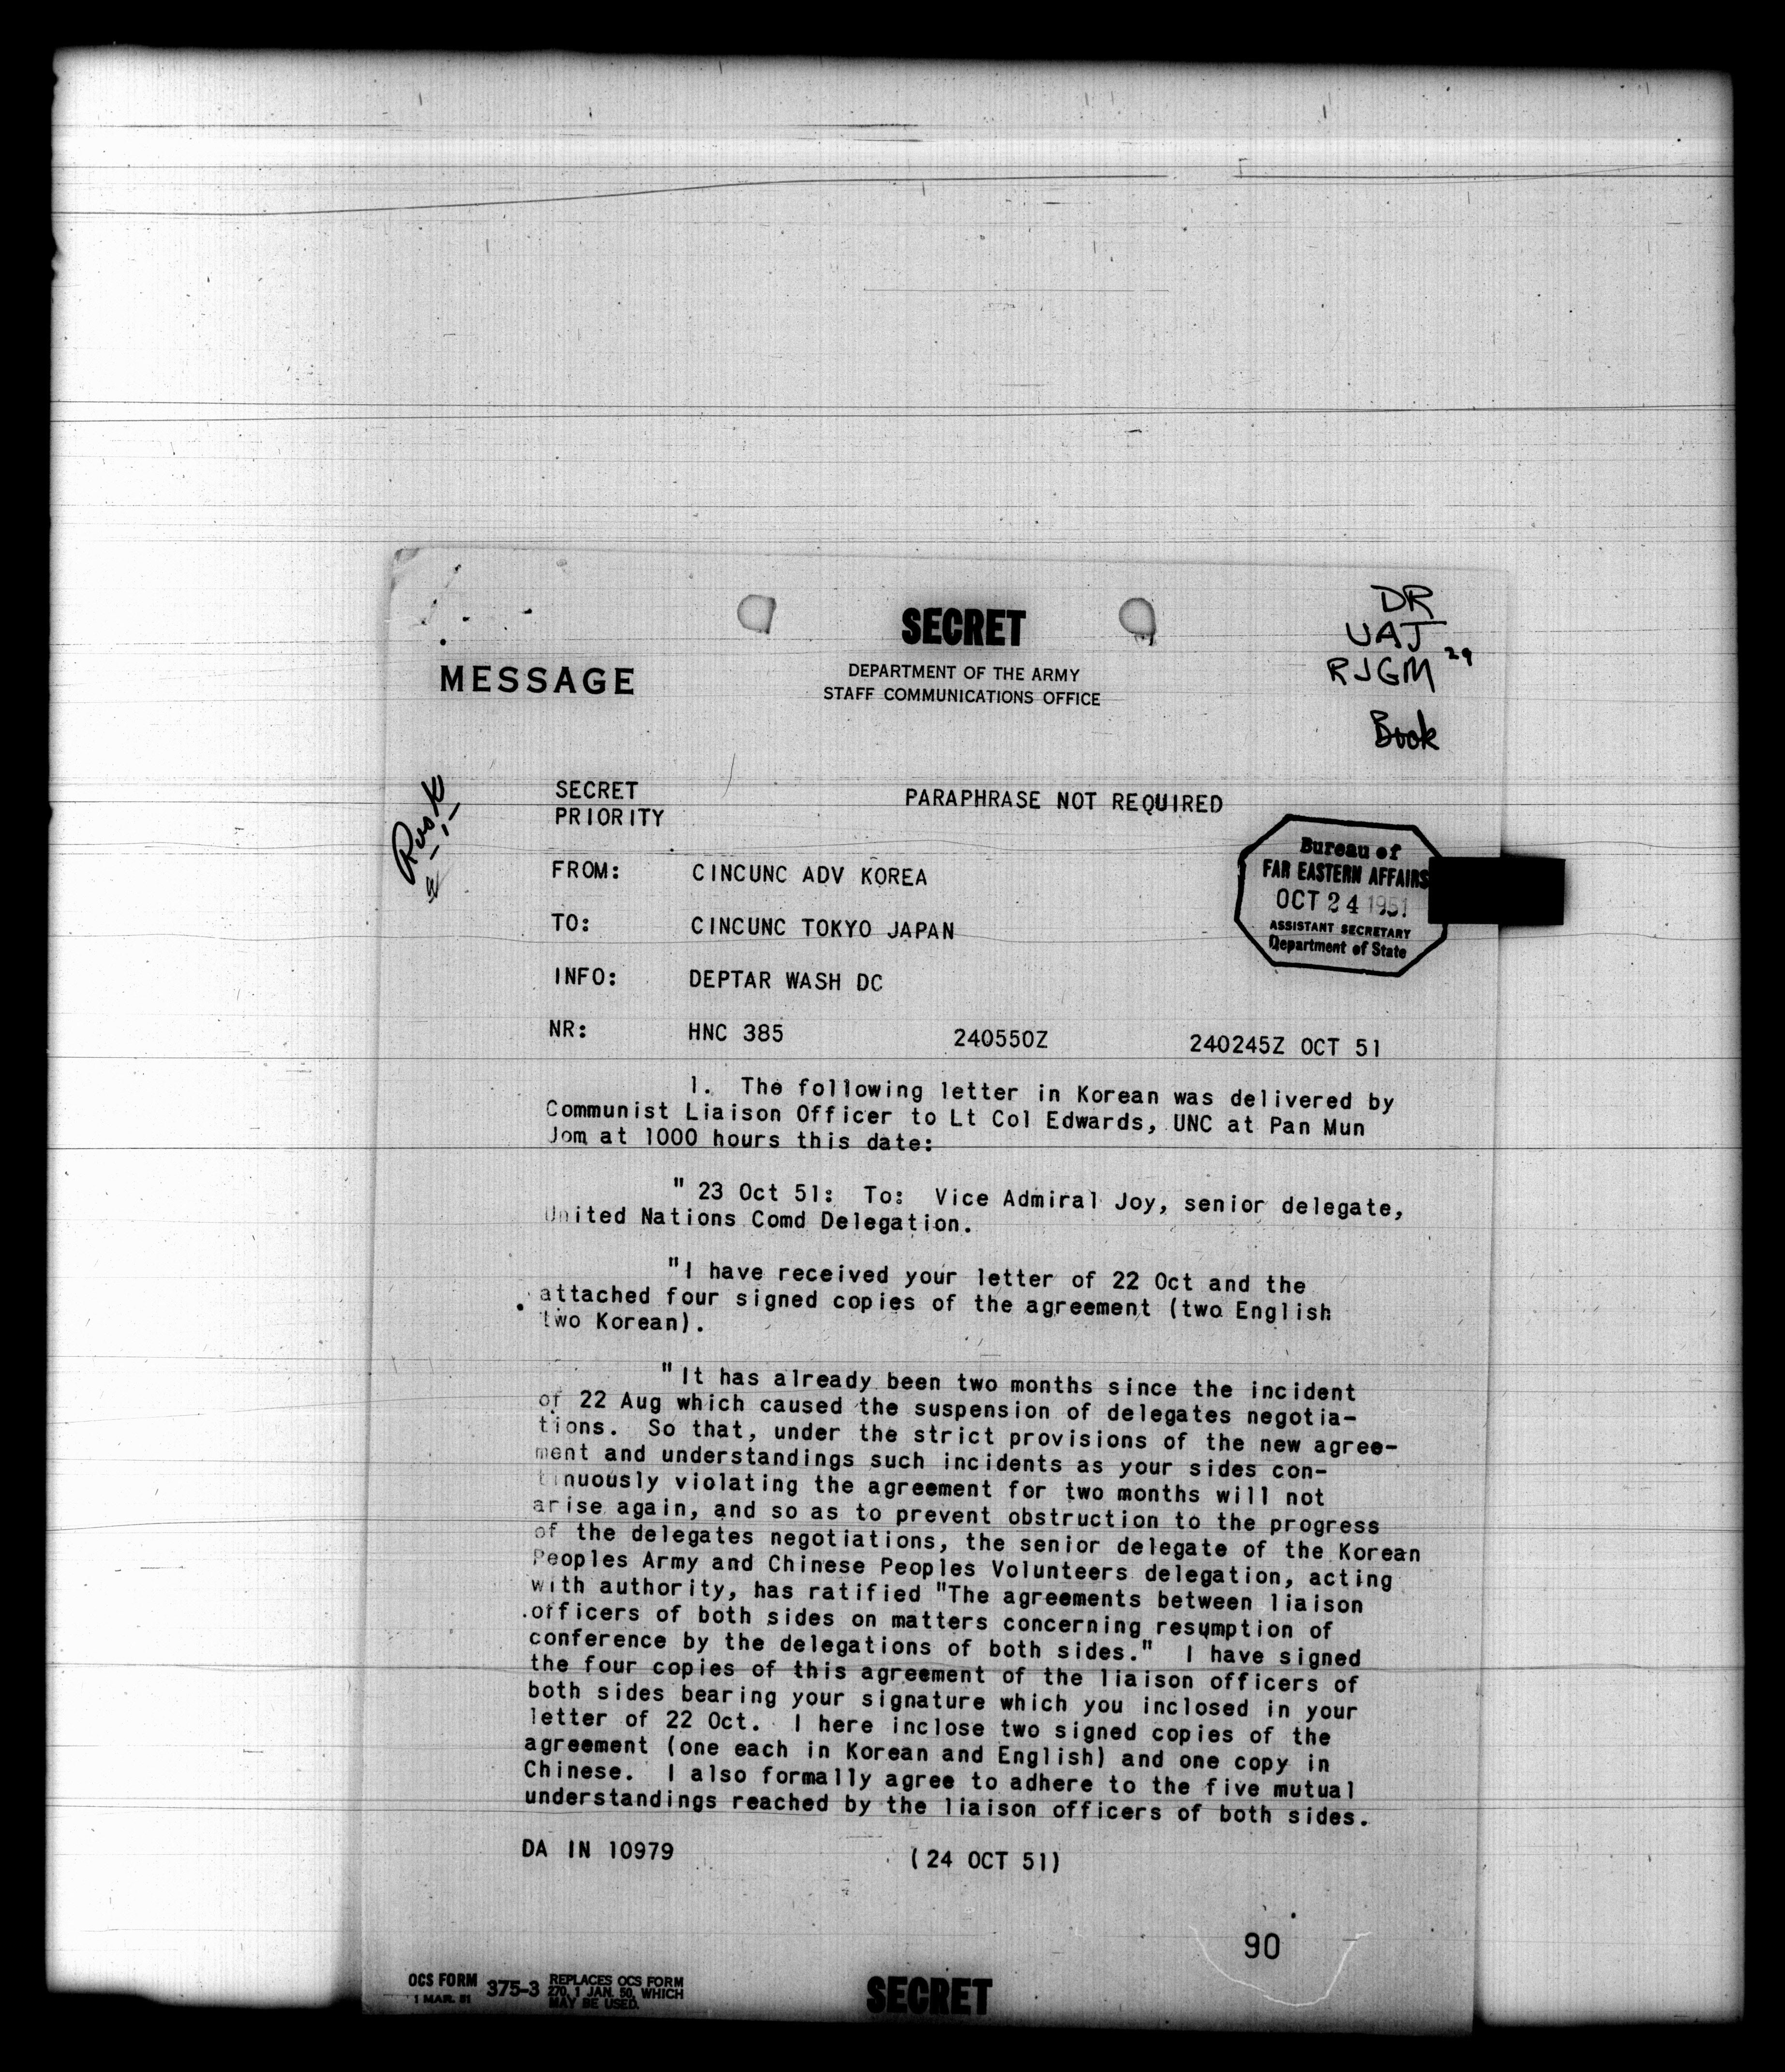 DR
UAJ
RJGM 29
Book
SECRET
MESSAGE
DEPARTMENT OF THE ARMY
STAFF COMMUNICATIONS OFFICE
Rusk
SECRET
PRIORITY
PARAPHRASE NOT REQUIRED
Bureau of
FAR EASTERN AFFAIRS
OCT 24 1951
ASSISTANT SECRETARY
Department of State
FROM: CINCUNC ADV KOREA
TO: CINCUNC TOKYO JAPAN
INFO: DEPTAR WASH DC
NR: HNC 385 240550Z 240245Z OCT 51
1. The following letter in Korean was delivered by
Communist Liaison Officer to Lt Col Edwards, UNC at Pan Mun
Jom at 1000 hours this date:
" 23 Oct 51: To: Vice Admiral Joy, senior delegate,
United Nations Comd Delegation.
"I have received your letter of 22 Oct and the
attached four signed copies of the agreement (two English
two Korean).
"It has already been two months since the incident
of 22 Aug which caused the suspension of delegates negotia-
tions. So that, under the strict provisions of the new agree-
ment and understandings such incidents as your sides con-
tinuously violating the agreement for two months will not
arise again, and so as to prevent obstruction to the progress
of the delegates negotiations, the senior delegate of the Korean
Peoples Army and Chinese Peoples Volunteers delegation, acting
with authority, has ratified "The agreements between liaison
officers of both sides on matters concerning resumption of
conference by the delegations of both sides." I have signed
the four copies of this agreement of the liaison officers of
both sides bearing your signature which you inclosed in your
letter of 22 Oct. I here inclose two signed copies of the
agreement (one each in Korean and English) and one copy in
Chinese. I also formally agree to adhere to the five mutual
understandings reached by the liaison officers of both sides.
DA IN 10979 (24 OCT 51)
90
OCS FORM 375-3 REPLACES OCS FORM
1 MAR. 51 270, 1 JAN. 50, WHICH
MAY BE USED.
SECRET